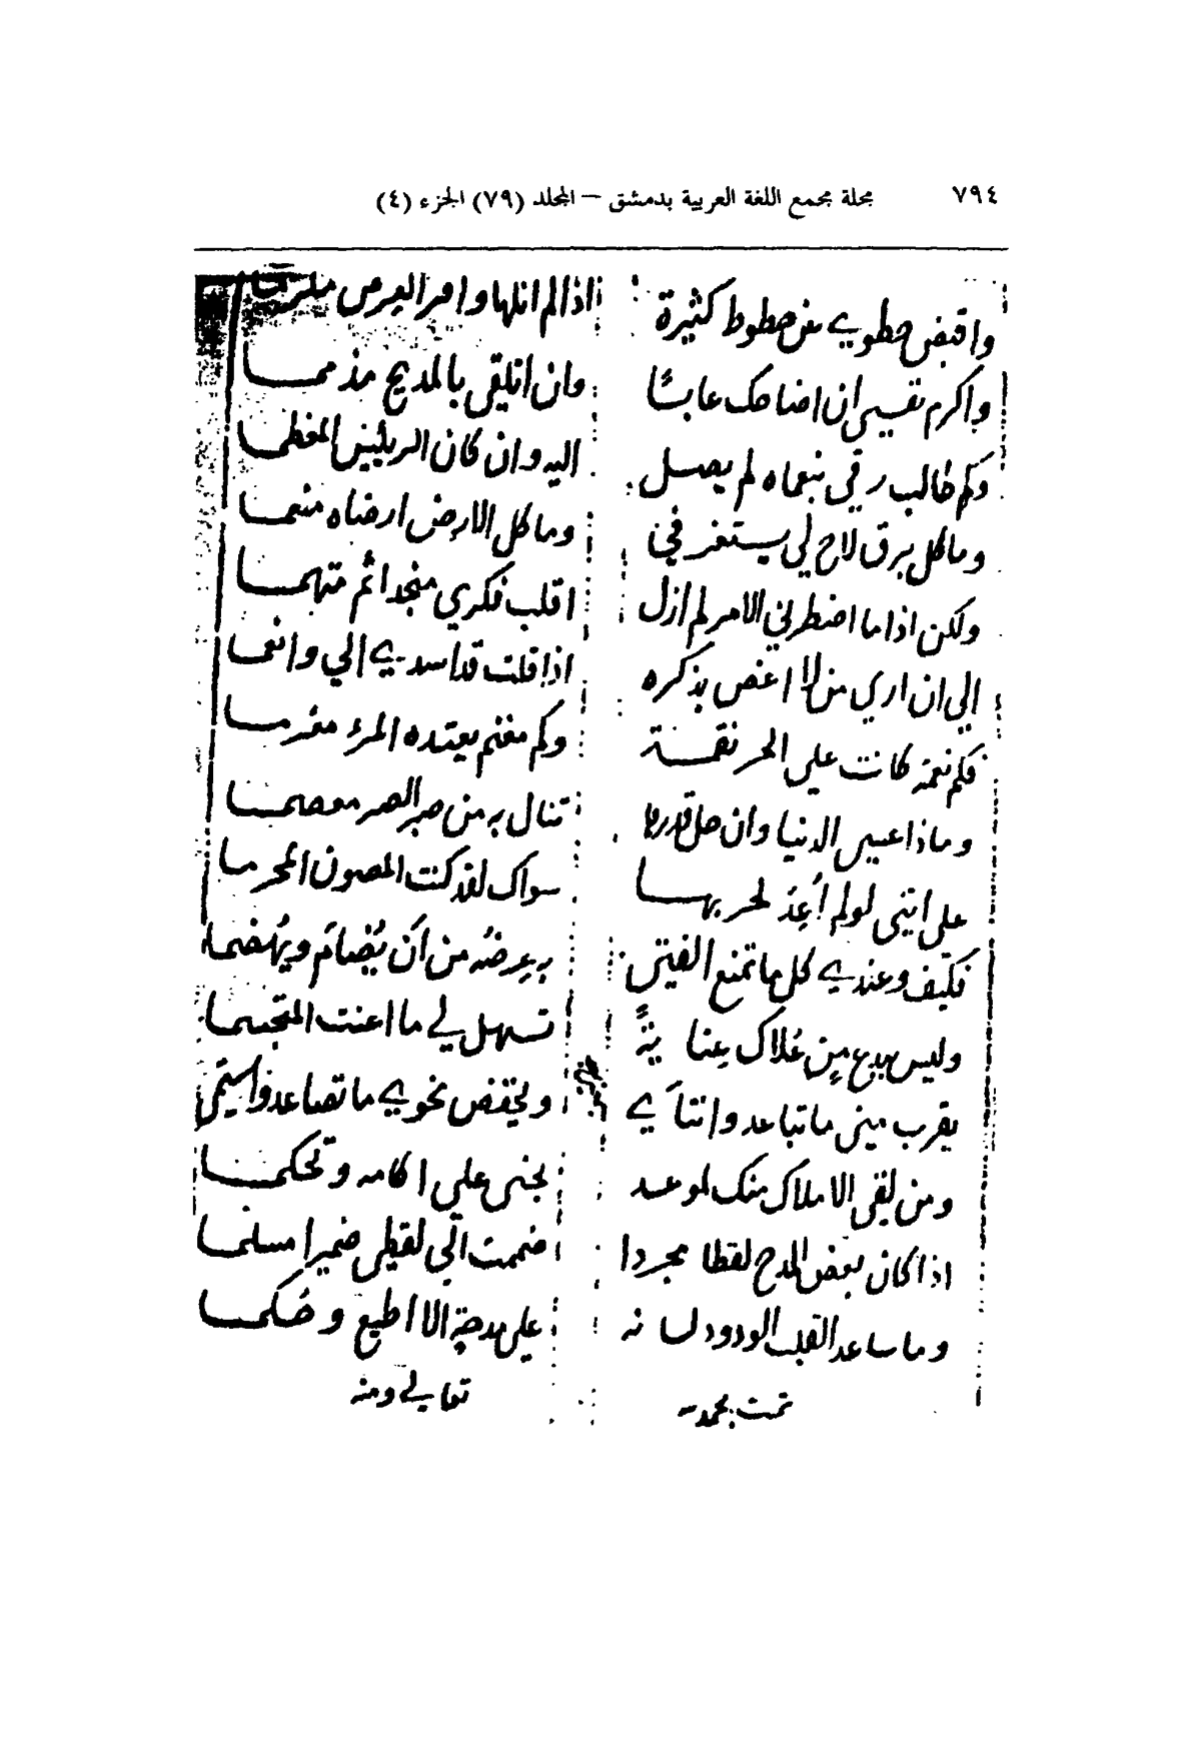 ٧٩٤ مجلة مجمع اللغة العربية بدمشق – المجلد (٧٩) الجزء (٤)
واقبض خطوي عن حظوظ كثيرة اذا لم انلها وافر العرض مكرما
واكرم نفسي ان اضاحك عابسًا وان اتلقى بالمديح مذمما
وكم طالب رقي بنعماه لم يصل اليه وان كان الرئيس المعظما
وما كل برق لاح لي يستفزني وما كل الارض ارضاه منعما
ولكن اذا ما اضطرني الامر لم ازل اقلب فكري منجدا ثم متهما
الي ان اري من لا اغص بذكره اذا قلت قد اسدي الي وانعما
فكم نعمة كانت علي الحر نقمة وكم مغنم يعتده المرء مغرما
وماذا عسى الدنيا وان جل قدرها تنال به من صبر معصما
على انني لو لم أعد لحربها سواك لقد كنت المصون المحرما
فكيف وعندي كل ما تمنع الفتى به عرضُه من أن يُضامَ ويُهضما
وليس ببدع مِن عُلاك عناية تسهل لي ما اعنت المتجشما
يقرب مني ما تباعد وانتأي ويخفض نحوي ما تصاعد واستمى
ومن لقي الاملاك منك لموعد جنى على احكامه وتحكما
اذا كان بعض المدح لفظا مجردا ضممت الي لفظي ضميرا مسلما
وما ساعد القلب الودود لسانه على مدحة الا اطيع وحُكما
تمت بحمده تعالي ومنه